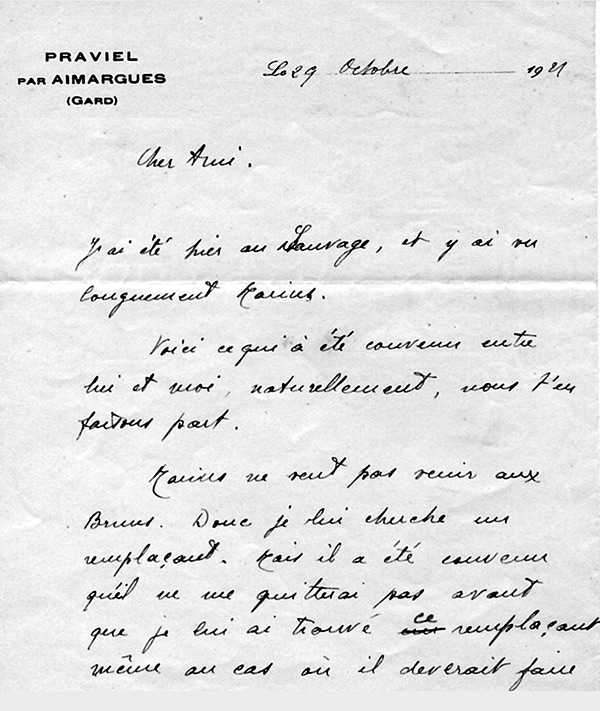 PRAVIEL
PAR AIMARGUES
(GARD)
Le 29 Octobre 1921
Cher Ami.
J'ai été hier au Sauvage, et y ai vu
longuement Marius.
Voici ce qui à été convenu entre
lui et moi, naturellement, nous t'en
faisons part.
Marius ne veut pas venir aux
Bruns. Donc je lui cherche un
remplaçant. Mais il a été convenu
qu'il ne me quitterai pas avant
que je lui ai trouvé ce remplaçant
même au cas où il deverait faire